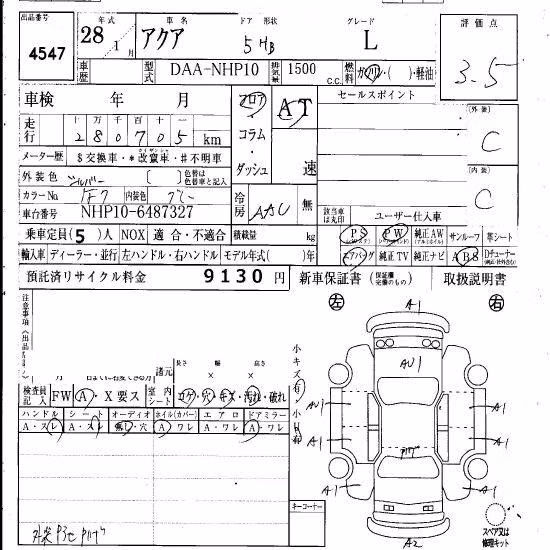 出品番号 4547
年式 28 1月
車名 アクア
ドア 形状 5 HB
グレード L
評価点 3.5
車歴
型式 DAA-NHP10
排気量 1500 c.c.
燃料 ガソリン・( )・軽油
車検 年 月
フロア・コラム・ダッシュ
AT 速
セールスポイント
外装 C
内装 C
走行 十万千百十
280705 km
メーター歴 $交換車・*改竄車・#不明車
外装色 シルバー ( ) 色替は色替車と記入
カラーNo. 1F7 内装色 グレー
車台番号 NHP10-6487327
冷房 AAC 無
該当車は丸印 ユーザー仕入車
乗車定員(5)人 NOX 適合・不適合 積載量 kg
PS PW 純正AW サンルーフ 革シート
輸入車 ディーラー・並行 左ハンドル・右ハンドル モデル年式( )年
エアバッグ 純正TV 純正ナビ ABS
預託済リサイクル料金 9130円
新車保証書 取扱説明書
左 右
注意事項
諸元 長さ 幅 高さ
× ×
検査員記入 FW A・X 要ス 室内シート コゲ・穴・キズ・汚れ・破れ
ハンドル シート オーディオ ホイル(カバー) エアロ ドアミラー
A・スレ A・スレ 無し・穴 A・ワレ A・ワレ A・ワレ
小キズ有・小凹有
A1
AU1
AU1 A1
A1 A1
A1 A1
A2
キーコーナー
スペア又は修理キット